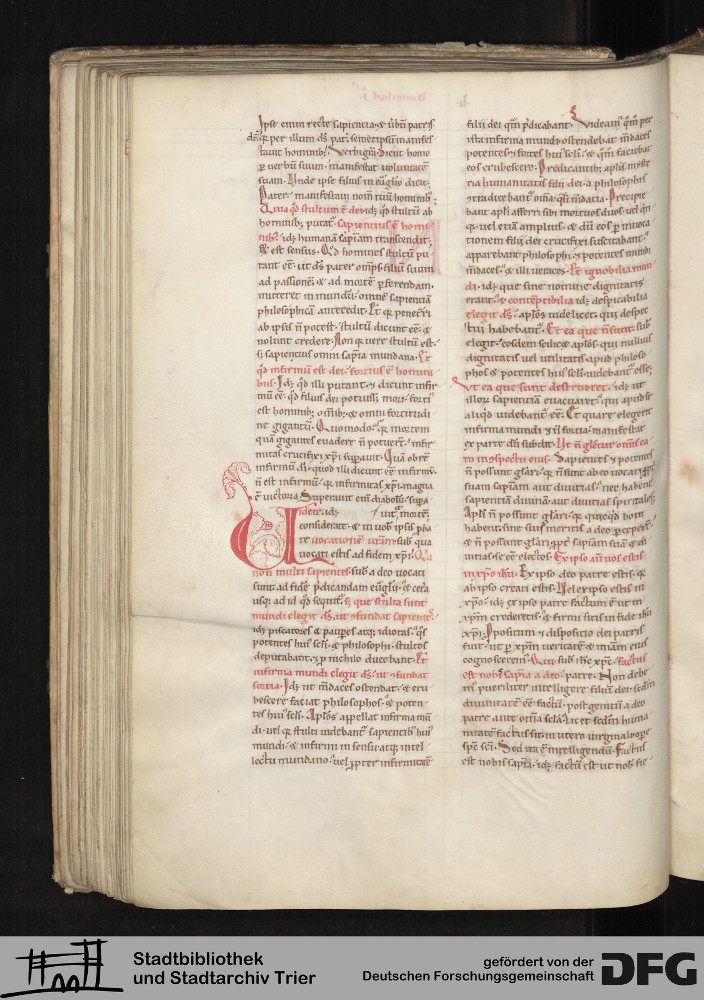 Ipse enim recte sapientia & uerbū patris
dr̄. q̄ per illum dš pat̄ semetipsū manifes
tauit hominib;. Verbi gr̄a. Sicut homo
p uerbū suum. manifestat uoluntatē
suam. Vnde ipse filius in euḡlio dicit;
Pater. manifestaui nom̄ tuū hominib;
Quia qđ stultum ē dei. idē qđ stultū ab
hominib; putat̄. sapientius ē homi
nib;. idē humanā sapīam transcendit;
& est sensus. Qđ homines stultū pu
tant eē. ut dš pater om̄ps filiū suum
ad passionē & ad mortē pferendam.
mitteret in mundū. omnē sapientiā
philosophicā antecedit. Et q̄ penetrari
ab ipsis n̄ potest. stultū dicunt eē. &
nolunt credere. Non q̄ uere stultū est.
s; sapientius omni sapīa mundana. Et
qđ infirmū est dei. fortius ē homini
bus. Idē qđ illi putant & dicunt infir
mū eē. qđ filius dei potuiss; mori. forti'
est hominib; omib; & omni fortitudi
ne gigantū. Quomodo. q̄ mortem
quā gigantes euadere n̄ potuer̄t. infir
mitas crucifixi xp̄i supauit. Quā obrē
infirmū dī. quod illi dicunt eē infirmū.
n̄ est infirmū. q̄ infirmitas xp̄i magna
ē uictoria. Superauit enī diabolū. supa
uit & mortē.
Videte. idē
considerate & in uob ipsis pba
te uocationē urām. sub qua
uocati estis ad fidem xp̄i. Quia
non multi sapientes. sub. a deo uocati
sunt ad fidē p̄dicandam euḡlii. & cet̄a
usq; ad id qđ sequit̄. s; que stulta sunt
mundi elegit dš. ut ɔfundat sapientes.
idē piscatores & paupes atq; idiotas. q̄s
potentes hui' scl̄i. & philosophi. stultos
deputabant. & p nichilo ducebant. Et
infirma mundi elegit dš. ut ɔfundat
fortia. Idē ut m̄daces ostendat. & eru
bescere faciat philosophos. & poten
tes hui' scl̄i. Aplōs appellat infirma mū
di. uel q̄ stulti uidebant̄ sapientib; hui'
mundi. & infirmi in sensu atq; intel
lectu mundano. uel ppter infirmitatē
filii dei qm̄ p̄dicabant. Videam' qm̄ per
ista infirma mundi ostendebat m̄daces
potentes & fortes hui' scl̄i. & qm̄ faciebat
eos erubescere. Predicantib; aplīs myste
ria humanitatis filii dei. a philosophis
ɔtradicebant̄ om̄a q̄si m̄dacia. Precipie
bant apl̄i afferri sibi mortuos duos. uel q̄tu
or. uel etiā amplius. & dū eos p inuoca
tionem filii dei crucifixi suscitabant.
apparebant philosophi & potentes mundi
m̄daces. & illi ueraces. Et ignobilia mun
di. idē que sine nomine dignitatis
erant. & contēptibilia. idē despicabilia
elegit dš. aplōs uidelicet. qui despec
tui habebant̄. Et ea que n̄ sunt. sub.
elegit. eosdem scilic& aplōs. qui nullius
dignitatis uel utilitatis apud philoso
phos & potentes hui' scl̄i. uidebant̄ esse;
Vt ea que sunt destrueret. idē ut
illoꝝ sapientiā euacuaret. qui apud se
aliqd uidebant̄ eē. Et quare elegerit
infirma mundi & n̄ fortia. manifestat
ex parte dū subdit. Vt n̄ glet̄ur omīs ca
ro in ɔspectu eius. Sapientes & potentes
n̄ possunt glāri. q̄ n̄ sunt ab eo uocati ppt̄
suam sapīam aut diuitias. nec habent
sapientiā diuinā. aut diuitias spiritales.
Apl̄i n̄ possunt glāri. q̄ quicqd boni
habent. sine suis meritis a deo pceper̄t.
& n̄ possunt glāri ppt̄ sapīam suā & di
uitias se eē electos. Ex ipso aū uos estis
in xp̄o ihū. Ex ipso deo patre estis. q̄
ab ipso creati estis. Vel ex ipso estis in
xp̄o. idē ex ipso patre factum ē ut in
xpm̄ crederetis. & firmi sitis in fide ihū
xp̄i. Ppositum & dispositio dei patris
fuit. ut p xpm̄ ueritatē & uiam eius
cognosceremus. Qui. sub. ihc xpc. factus
est nobis sapīa a deo. patre. Non debe
m' pueriliter intelligere filiū dei. sedm̄
diuinitatē eē factū. post genitū a deo
patre ante om̄a scl̄a. licet sedm̄ huma
nitatē factus sit in utero uirginal' ope
sp̄c sc̄i. Sed ita ē intelligendū. Factus
est nobis sapīa. idē factū est ut nob fie
Stadtbibliothek
und Stadtarchiv Trier
gefördert von der
Deutschen Forschungsgemeinschaft
DFG